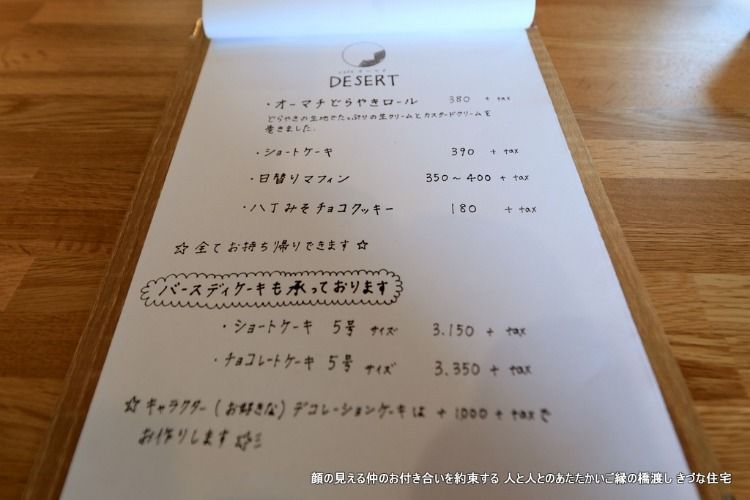 DESERT
・オーマチどらやきロール 380 + tax
どらやきの生地でたっぷりの生クリームとカスタードクリームを
巻きました。
・ショートケーキ 390 + tax
・日替りマフィン 350〜400 + tax
・八丁みそチョコクッキー 180 + tax
☆全てお持ち帰りできます☆
バースディケーキも承っております
・ショートケーキ 5号 サイズ 3.150 + tax
・チョコレートケーキ 5号 サイズ 3.350 + tax
☆キャラクター(お好きな)デコレーションケーキは +1000 + taxで
お作りします☆
顔の見える仲のお付き合いを約束する 人と人とのあたたかいご縁の橋渡し きづな住宅